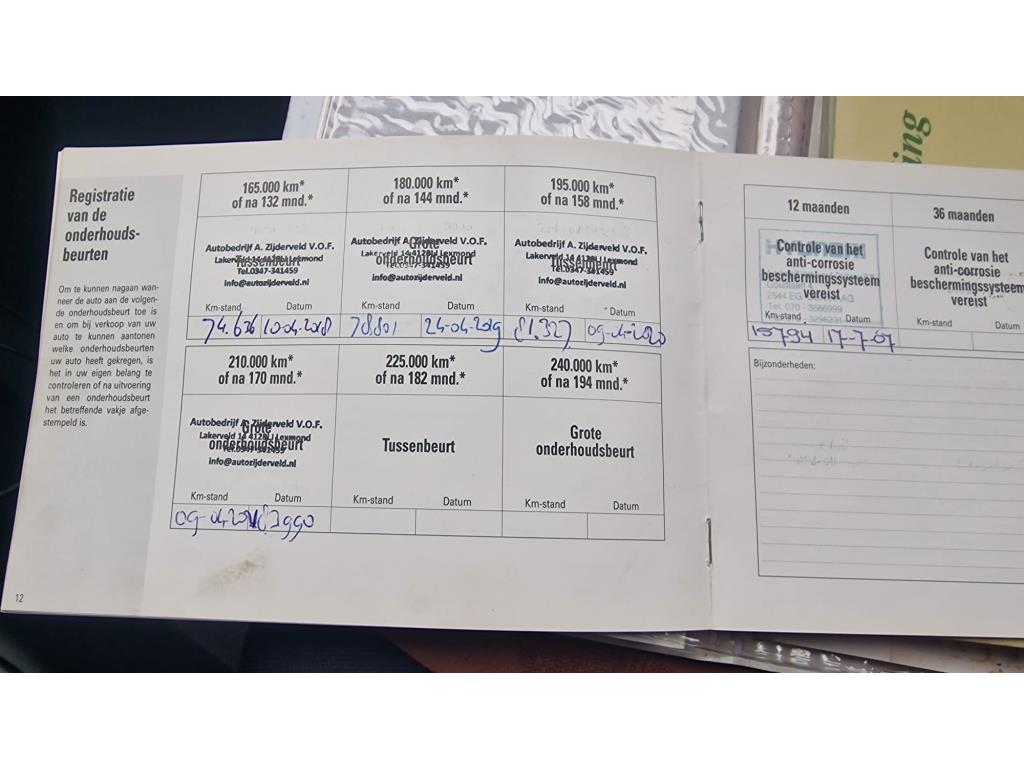 ning
Registratie
van de
onderhouds-
beurten
Om te kunnen nagaan wan-
neer de auto aan de volgen-
de onderhoudsbeurt toe is
en om bij verkoop van uw
auto te kunnen aantonen
welke onderhoudsbeurten
uw auto heeft gekregen, is
het in uw eigen belang te
controleren of na uitvoering
van een onderhoudsbeurt
het betreffende vakje afge-
stempeld is.
12
165.000 km*
of na 132 mnd.*
Autobedrijf A. Zijderveld V.O.F.
Lakerveld 14 4128LJ Lexmond
Tussenbeurt
Tel.0347-341459
info@autozijderveld.nl
Km-stand Datum
74.626 10-04-2018
180.000 km*
of na 144 mnd.*
Grote
Autobedrijf A. Zijderveld V.O.F.
Lakerveld 14 4128LJ Lexmond
onderhoudsbeurt
Tel.0347-341459
info@autozijderveld.nl
Km-stand Datum
78801 24-04-2019
195.000 km*
of na 158 mnd.*
Autobedrijf A. Zijderveld V.O.F.
Lakerveld 14 4128LJ Lexmond
Tussenbeurt
Tel.0347-341459
info@autozijderveld.nl
Km-stand Datum
81.327 09-04-2020
210.000 km*
of na 170 mnd.*
Autobedrijf A. Zijderveld V.O.F.
Grote
Lakerveld 14 4128LJ Lexmond
onderhoudsbeurt
Tel.0347-341459
info@autozijderveld.nl
Km-stand Datum
09-04-2021
225.000 km*
of na 182 mnd.*
Tussenbeurt
Km-stand Datum
240.000 km*
of na 194 mnd.*
Grote
onderhoudsbeurt
Km-stand Datum
12 maanden
Controle van het
anti-corrosie
beschermingssysteem
vereist
2544 EG
Tel. 070 - 3666999
Km-stand Datum
15794 17-7-07
36 maanden
Controle van het
anti-corrosie
beschermingssysteem
vereist
Km-stand Datum
Bijzonderheden: